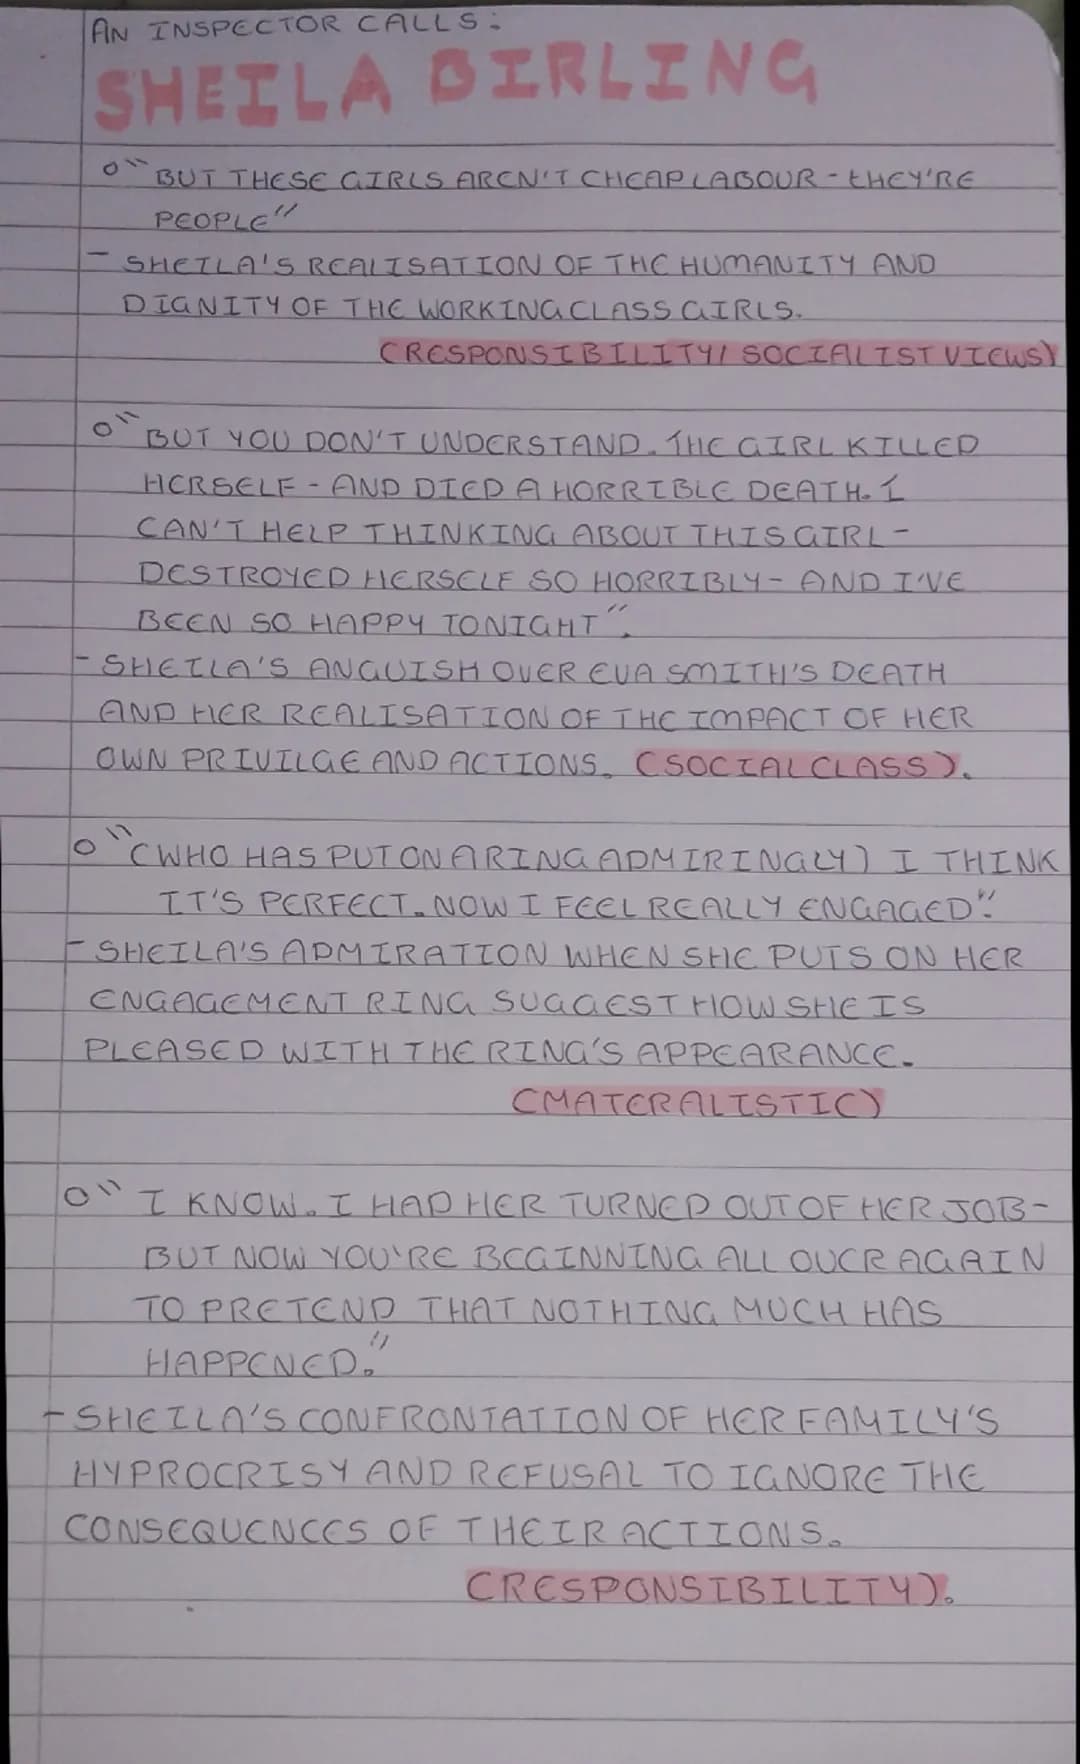 AN INSPECTOR CALLS:
SHEILA BIRLING
o "BUT THESE GIRLS AREN'T CHEAP LABOUR - THEY'RE
PEOPLE"
- SHEILA'S REALISATION OF THE HUMANITY AND
DIGNITY OF THE WORKING CLASS GIRLS.
(RESPONSIBILITY/ SOCIALIST VIEWS)
o "BUT YOU DON'T UNDERSTAND. THE GIRL KILLED
HERSELF - AND DIED A HORRIBLE DEATH. I
CAN'T HELP THINKING ABOUT THIS GIRL -
DESTROYED HERSELF SO HORRIBLY - AND I'VE
BEEN SO HAPPY TONIGHT".
- SHEILA'S ANGUISH OVER EVA SMITH'S DEATH
AND HER REALISATION OF THE IMPACT OF HER
OWN PRIVILGE AND ACTIONS. (SOCIAL CLASS).
o "(WHO HAS PUT ON A RING ADMIRINGLY) I THINK
IT'S PERFECT. NOW I FEEL REALLY ENGAGED".
- SHEILA'S ADMIRATION WHEN SHE PUTS ON HER
ENGAGEMENT RING SUGGEST HOW SHE IS
PLEASED WITH THE RING'S APPEARANCE.
(MATERALISTIC)
o "I KNOW. I HAD HER TURNED OUT OF HER JOB -
BUT NOW YOU'RE BEGINNING ALL OVER AGAIN
TO PRETEND THAT NOTHING MUCH HAS
HAPPENED."
- SHEILA'S CONFRONTATION OF HER FAMILY'S
HYPROCRISY AND REFUSAL TO IGNORE THE
CONSEQUENCES OF THEIR ACTIONS.
(RESPONSIBILITY).